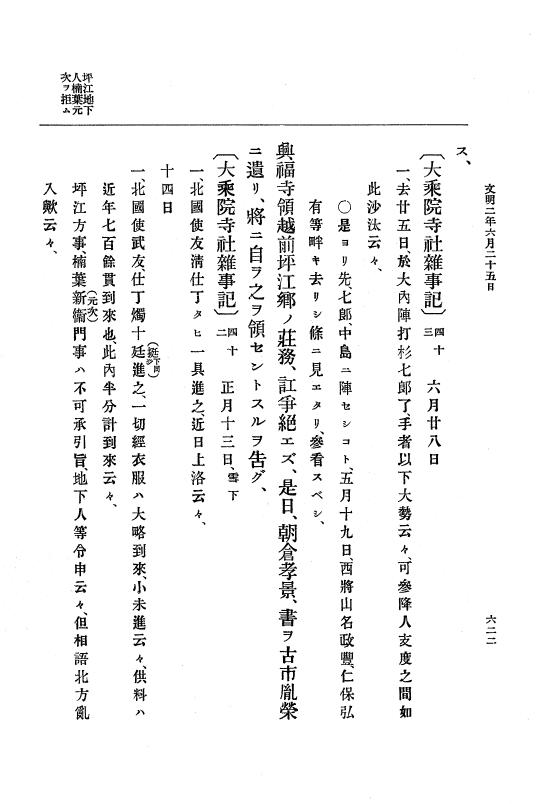 文明二年六月二十五日
六二二
ス、
〔大乘院寺社雜事記〕四十三　六月廿八日
一、去廿五日、於大內陣打杉七郎了、手者以下大勢云々、可參降人支度之間如
此沙汰云々、
○是ヨリ先、七郎、中島ニ陣セシコト、五月十九日、西將山名政豐、仁保弘
有等畔キ去リシ條ニ見エタリ、參看スベシ、
興福寺領越前坪江鄕ノ莊務、訌爭絕エズ、是日、朝倉孝景、書ヲ古市胤榮
ニ遺リ、將ニ自ヲ之ヲ領セントスルヲ告グ、
〔大乘院寺社雜事記〕四十二　正月十三日、雪下
一、北國使友淸仕丁タヒ一具進之、近日上洛云々、
十四日
一、北國使武友、仕丁燭十廷(挺下同ジ)進之、一切經衣服ハ大略到來、小未進云々、供料ハ
近年七百餘貫到來也、此內半分計到來云々、
坪江方事、楠葉新衞門(元次)事ハ不可承引旨、地下人等令申云々、但相語北方亂
入歟云々、
坪江地下
人楠葉元
次ヲ拒ム